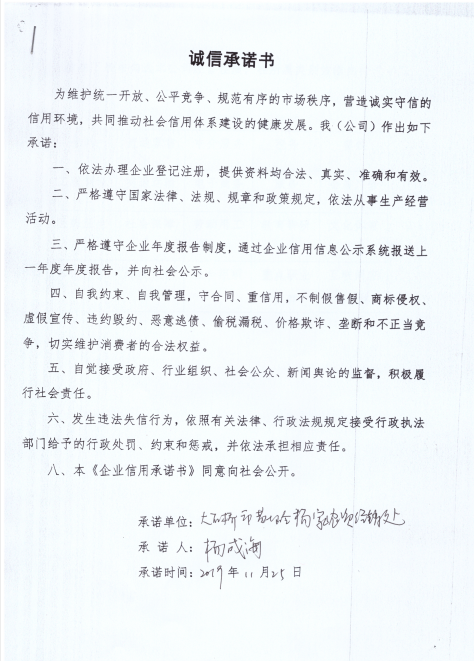 诚信承诺书
为维护统一开放、公平竞争、规范有序的市场秩序，营造诚实守信的
信用环境，共同推动社会信用体系建设的健康发展。我（公司）作出如下
承诺：
一、依法办理企业登记注册，提供资料均合法、真实、准确和有效。
二、严格遵守国家法律、法规、规章和政策规定，依法从事生产经营
活动。
三、严格遵守企业年度报告制度，通过企业信用信息公示系统报送上
一年度年度报告，并向社会公示。
四、自我约束、自我管理，守合同、重信用，不制假售假、商标侵权、
虚假宣传、违约毁约、恶意逃债、偷税漏税、价格欺诈、垄断和不正当竞
争，切实维护消费者的合法权益。
五、自觉接受政府、行业组织、社会公众、新闻舆论的监督，积极履
行社会责任。
六、发生违法失信行为，依照有关法律、行政法规规定接受行政执法
部门给予的行政处罚、约束和惩戒，并依法承担相应责任。
八、本《企业信用承诺书》同意向社会公开。
承诺单位：大石桥市
承 诺 人：杨成海
承诺时间：2019年11月25日